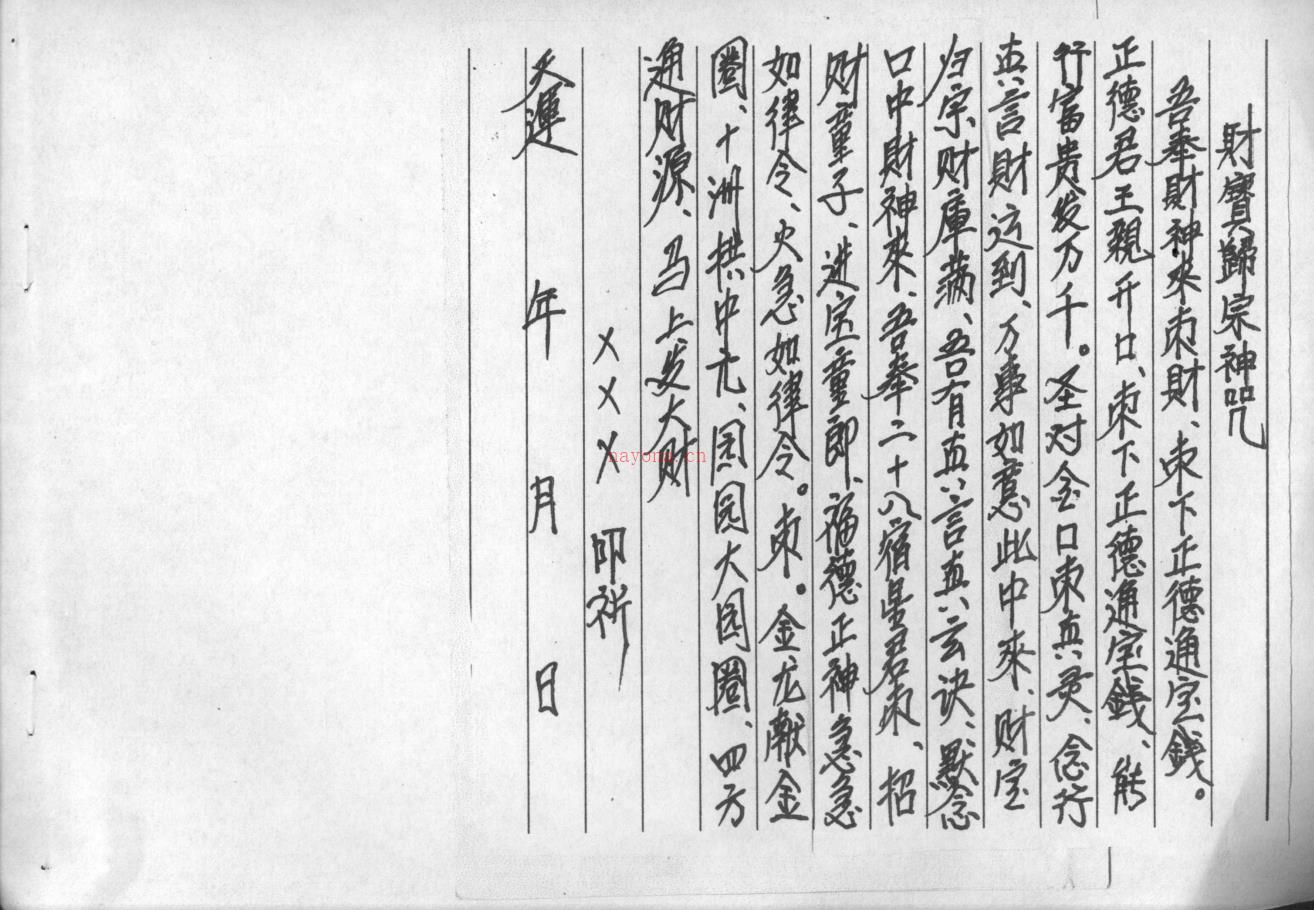 財寶歸宗神咒
吾奉財神來束財、束下正德通宝錢。
正德君王親开口、束下正德通宝錢、能
行富贵发万千。圣对金口束真灵、念行
真言財运到、万事如意此中來、财宝
归宗财庫满、吾有真言真玄诀、默念
口中財神來、吾奉二十八宿星君束、招
财童子、进宝童郎、福德正神急急
如律令、火急如律令。束。金龙献金
圈、十洲拱中元、园园大园圈、四方
通财源、马上发大财
××× 叩祈
天運 年 月 日
nayona.cn